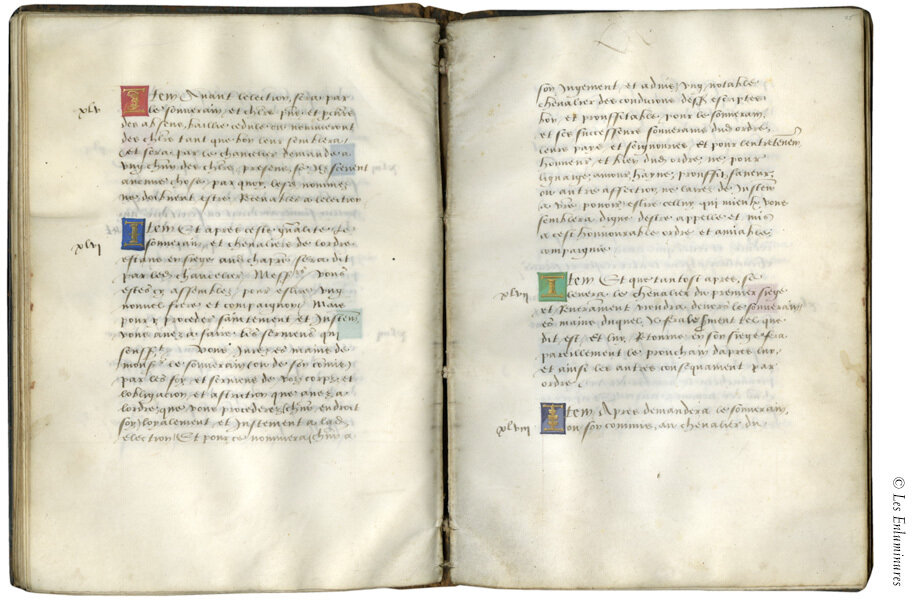 xlv
Item Avant lelection, sera par
le souverain, et chlrs pñs et procurs
des absens, baillie cedule ou nommeront
des chlrs tant que bon leur semblera
Et sera par le chancelier demande a
ung chun des chlrs, presens, se Ilz scevent
aucune chose parquoy les nommez
ne doibvent estre Recevables a lelection
xlvi
Item Et apres ceste qualite Le
souverain, et chevaliers de lordre
estans en siege aud chapre sera dit
par led chancelier Messrs Vous
estes cy assemblez pour eslire ung
nouvel frere et compaignon, Mais
pour y proceder sainctement et Justem
vous avez a faire les sermens qui
sensst Vous Jurez es mains de
mons le souverain (ou de son comis)
par les foy et serment de voz corps et
lobligacion et astriction que avez a
lordre, que vous procederez chun endroit
soy loyalement et Justement a lad
election Et pour ce nommera chun a
son Jugement et advis, ung notable
chevalier des condicions dess escriptes
bon et prouffitable, pour le souverain,
et ses successeurs souverains dud ordre,
leurs pays et seignouries, et pour lentretenem
honneur et bien dud ordre, ne pour
lignaige, amour, hayne, prouffit, faveur,
ou autre affection ne lairez de Justem
a vre povoir eslire celluy qui mieulx vous
semblera digne destre appelle et mis
a cest honnourable ordre et amiable
compaignie
xlvii
Item Et que tantost apres, se
levera le chevalier du premier siege
et Reverament viendra devers le souverain
es mains duquel Il fera serment tel que
dit est, et luy Retourne en son siege fera
pareillement le prouchain dapres luy,
et ainsi les autres consequament par
ordre
xlviii
Item Apres demandera le souverain,
ou son commis, au chevalier du
© Les Enluminures